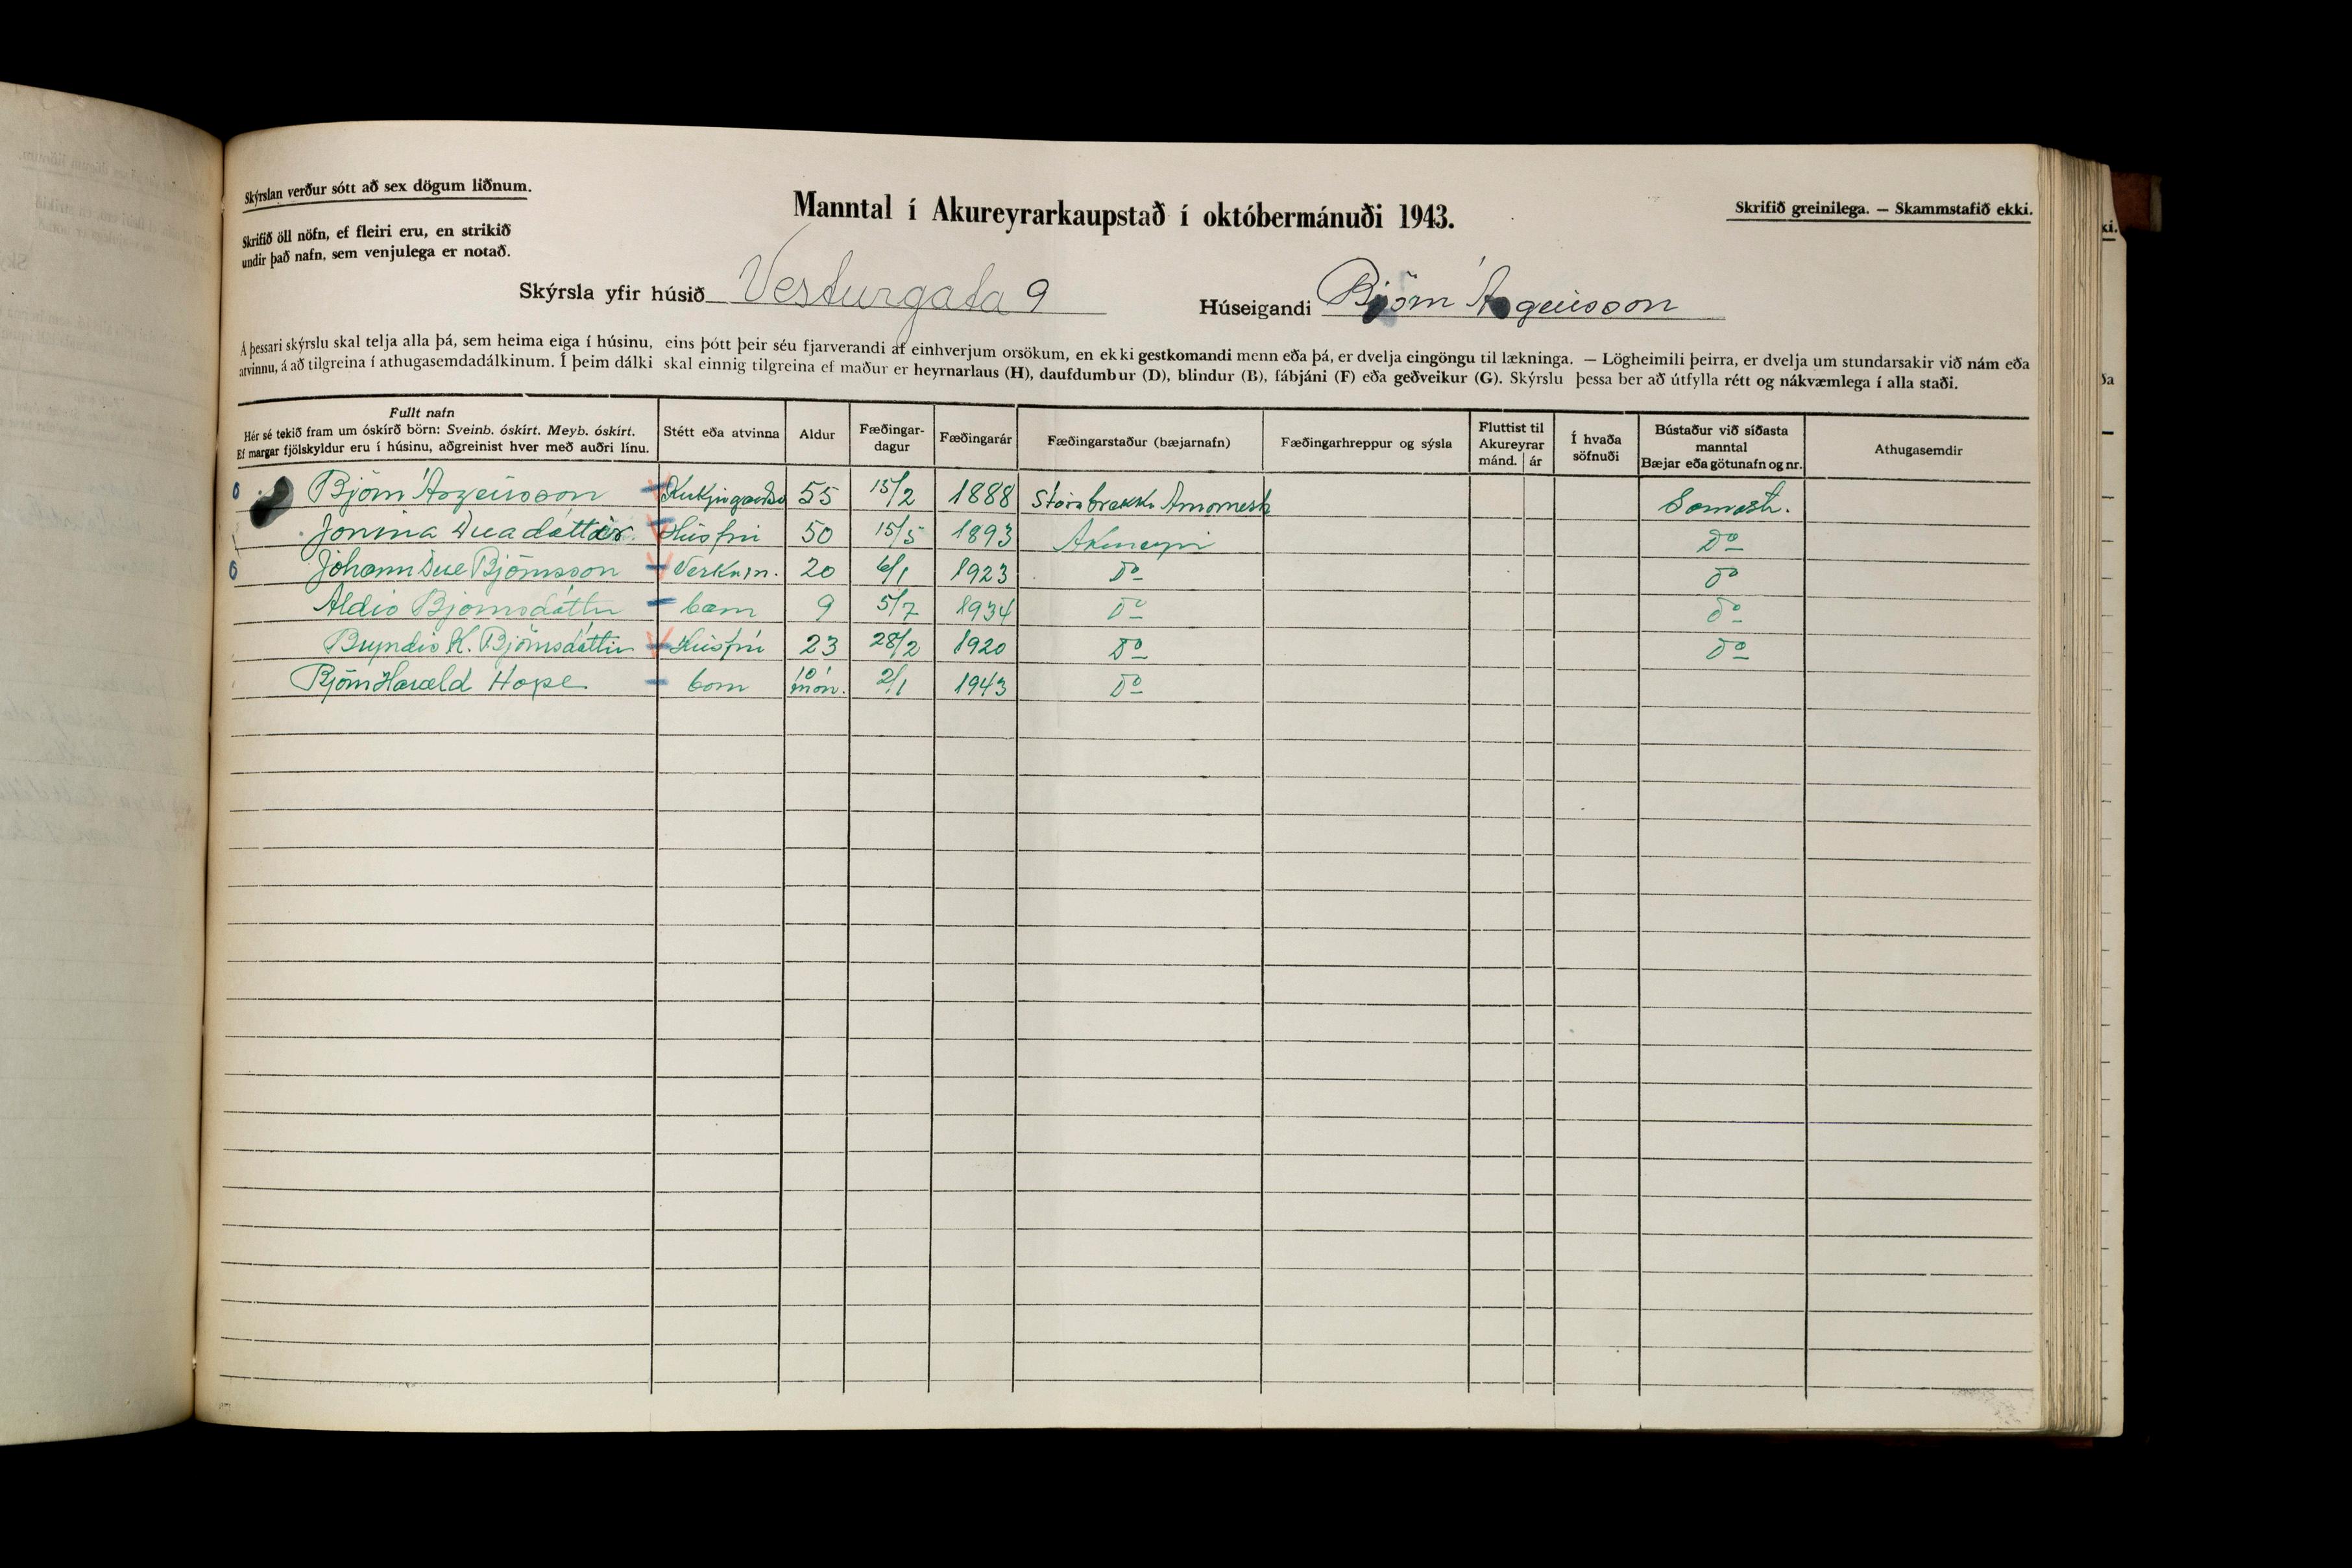 Skýrslan verður sótt að sex dögum liðnum.
Skrifið öll nöfn, ef fleiri eru, en strikið
undir það nafn, sem venjulega er notað.
Manntal í Akureyrarkaupstað í októbermánuði 1943.
Skrifið greinilega. — Skammstafið ekki.
Skýrsla yfir húsið Vesturgata 9 Húseigandi Björn Ásgeirsson
Á þessari skýrslu skal telja alla þá, sem heima eiga í húsinu, eins þótt þeir séu fjarverandi af einhverjum orsökum, en ekki gestkomandi menn eða þá, er dvelja eingöngu til lækninga. — Lögheimili þeirra, er dvelja um stundarsakir við nám eða
atvinnu, á að tilgreina í athugasemdadálkinum. Í þeim dálki skal einnig tilgreina ef maður er heyrnarlaus (H), daufdumbur (D), blindur (B), fábjáni (F) eða geðveikur (G). Skýrslu þessa ber að útfylla rétt og nákvæmlega í alla staði.
Fullt nafn
Hér sé tekið fram um óskírð börn: Sveinb. óskírt. Meyb. óskírt.
Ef margar fjölskyldur eru í húsinu, aðgreinist hver með auðri línu.
Stétt eða atvinna
Aldur
Fæðingar-
dagur
Fæðingarár
Fæðingarstaður (bæjarnafn)
Fæðingarhreppur og sýsla
Fluttist til
Akureyrar
mánd. ár
Í hvaða
söfnuði
Bústaður við síðasta
manntal
Bæjar eða götunafn og nr.
Athugasemdir
Björn Ásgeirsson 55 15/2 1888 Stórabrekka Samast.
Jónína Duadóttir Húsfrú 50 15/5 1893 Akureyri Do
Jóhann Due Björnsson Verkam. 20 6/1 1923 Do Do
Aldís Björnsdóttir barn 9 5/7 1934 Do Do
Bryndís K. Björnsdóttir Húsfrú 23 28/2 1920 Do Do
Björn Harald Hope barn 10 mán. 2/1 1943 Do